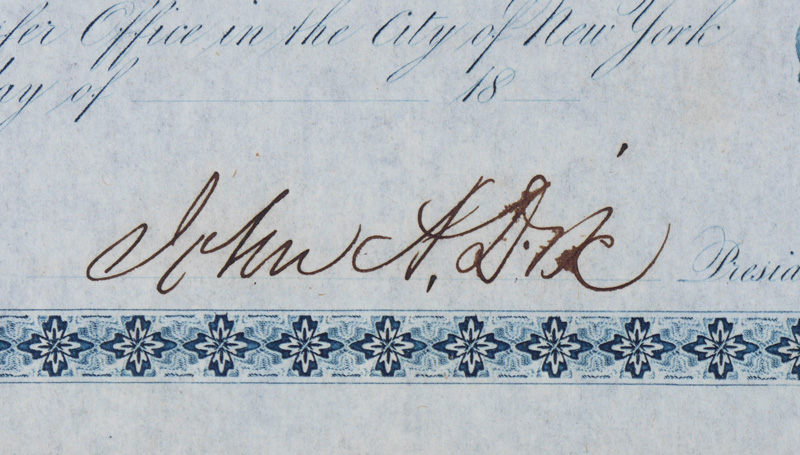 sfer Office in the City of New York
day of 18
John A. Dix
Presid